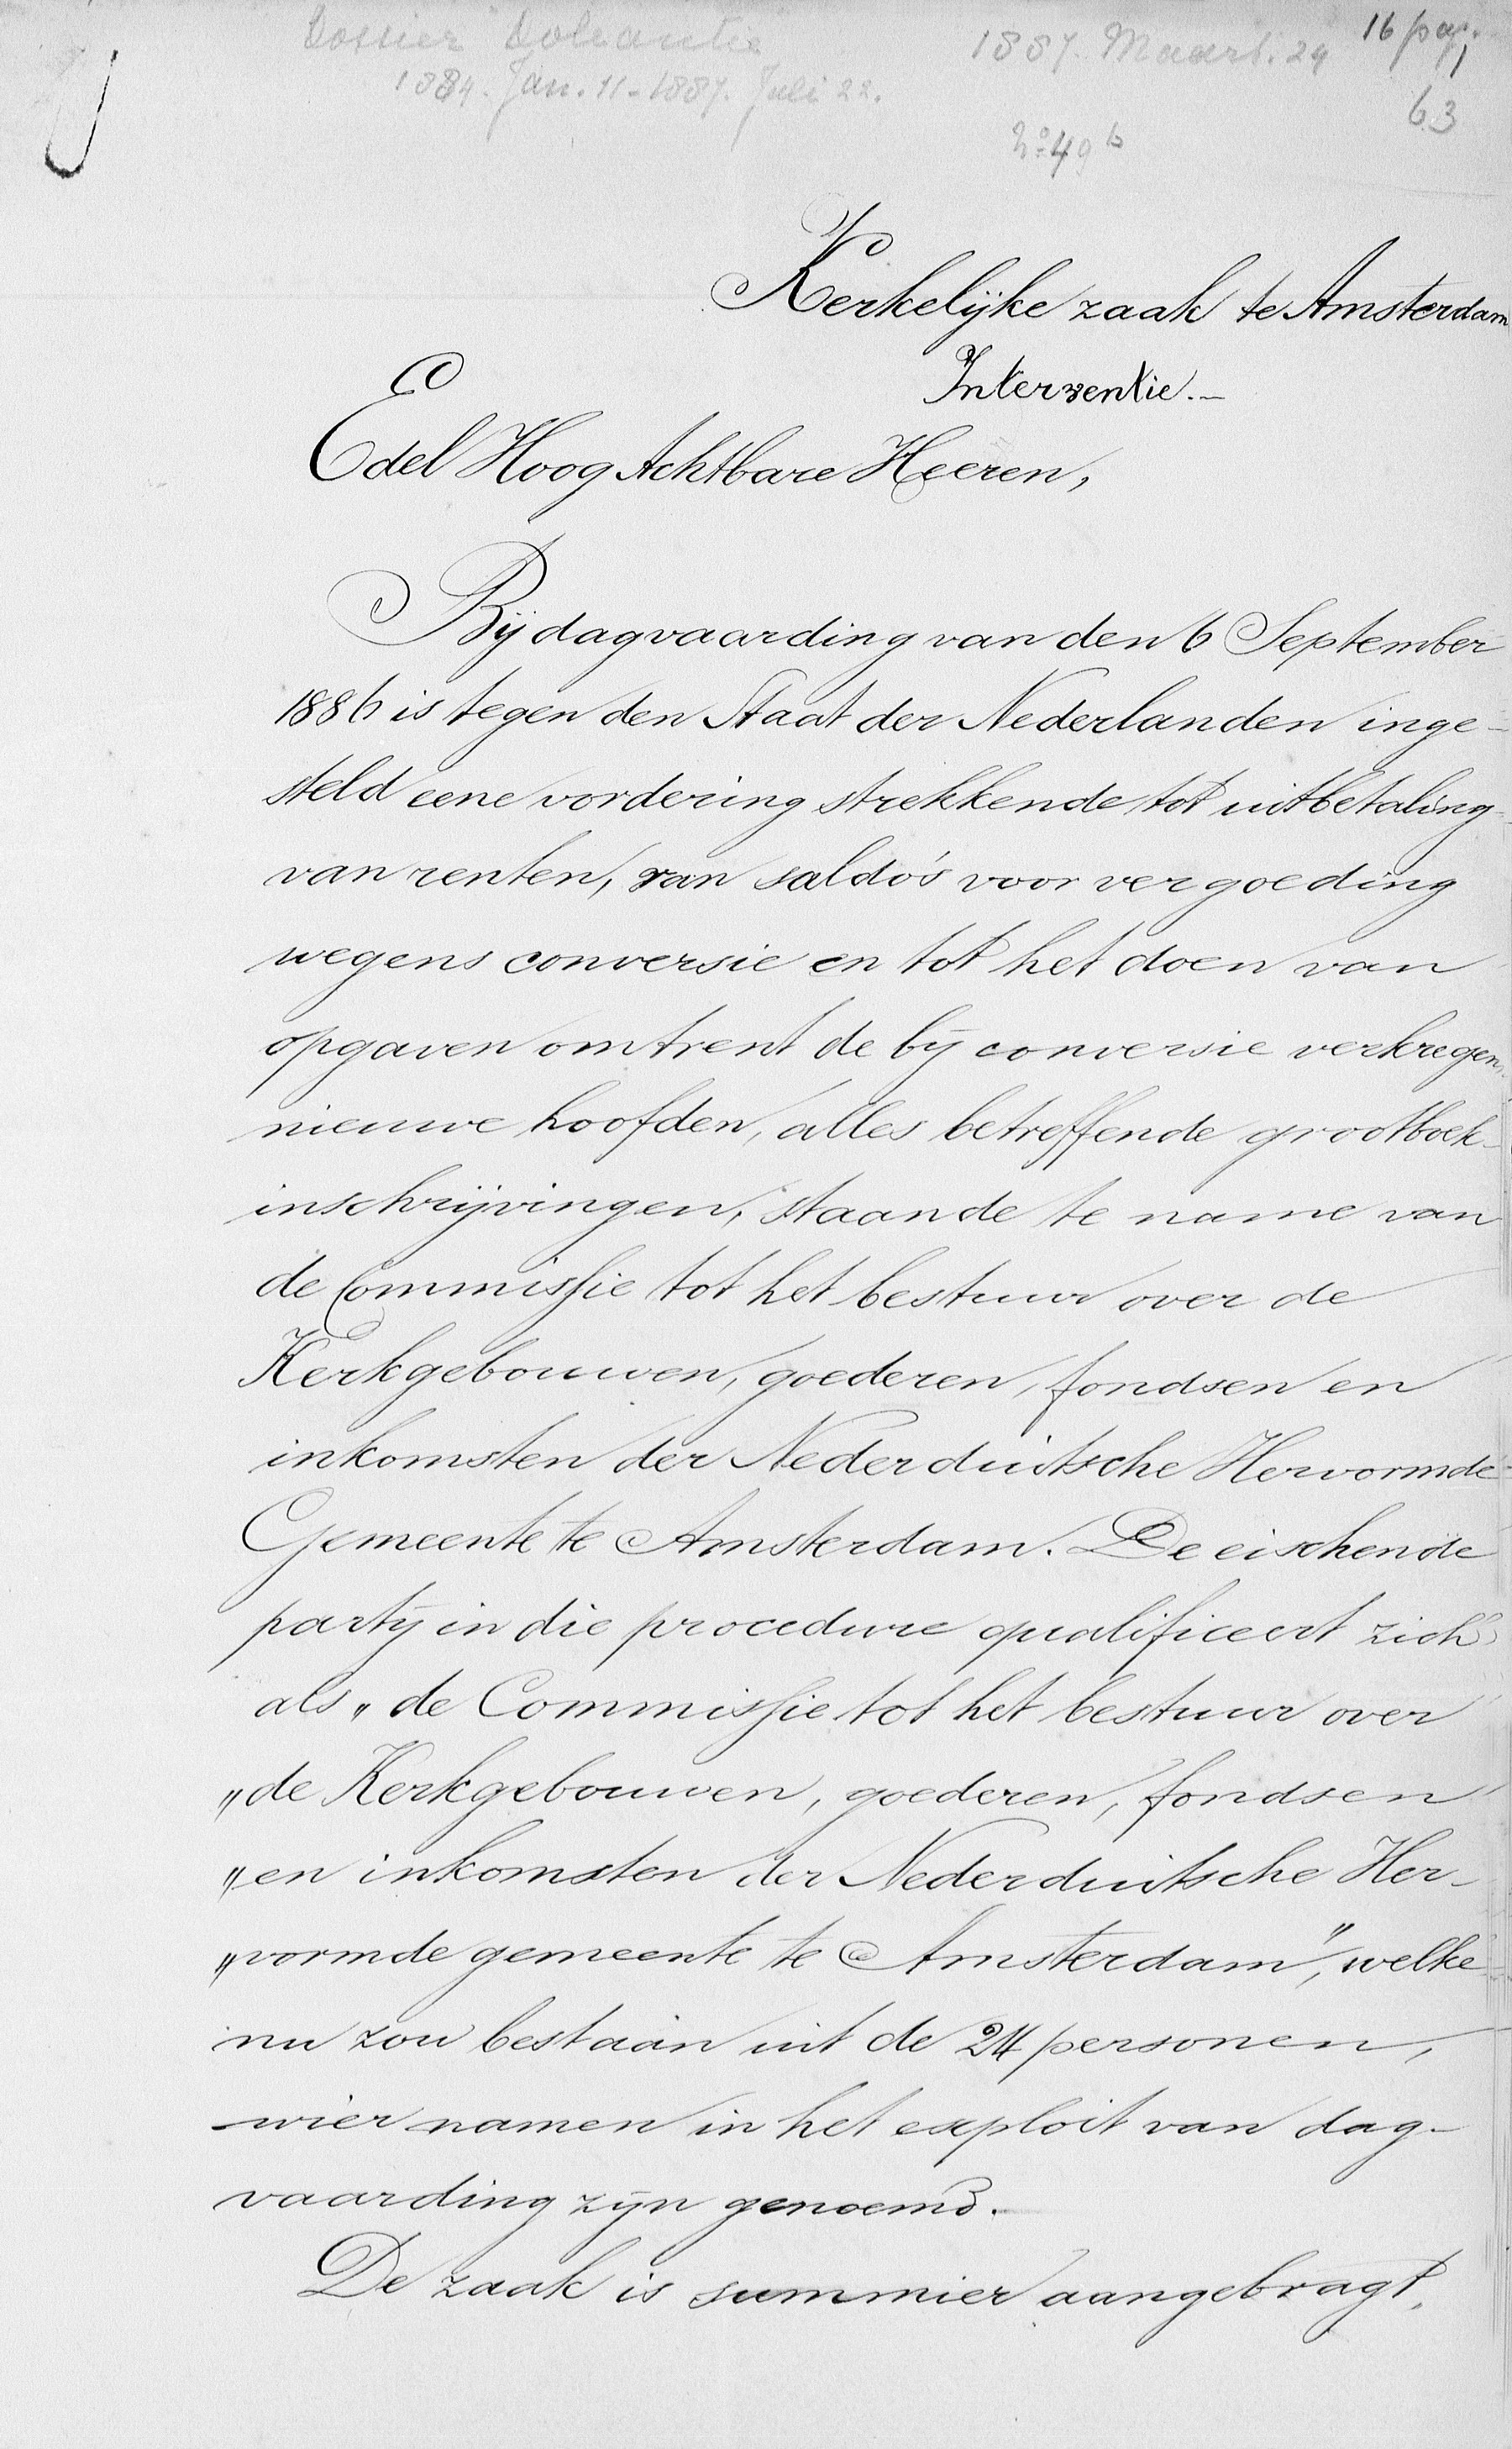 Dossier Doleantie 1887. Maart. 29 16 pag.
1884. Jan. 11 - 1887. Juli 22.
63
No 49 b
Kerkelijke zaak te Amsterdam
Interventie.-
Edel Hoog Achtbare Heeren,
Bij dagvaarding van den 6 September
1886 is tegen den Staat der Nederlanden inge-
steld eene vordering strekkende tot uitbetaling
van renten, van saldo's voor vergoeding
wegens conversie en tot het doen van
opgaven omtrent de bij conversie verkregen
nieuwe hoofden, alles betreffende grootboek-
inschrijvingen, staande te name van
de Commissie tot het bestuur over de
Kerkgebouwen, goederen, fondsen en
inkomsten der Nederduitsche Hervormde
Gemeente te Amsterdam. De eischende
partij in die procedure qualificeert zich
als „de Commissie tot het bestuur over
„de Kerkgebouwen, goederen, fondsen
„en inkomsten der Nederduitsche Her-
„vormde gemeente te Amsterdam", welke
nu zou bestaan uit de 24 personen,
wier namen in het exploit van dag-
vaarding zijn genoemd.
De zaak is summier aangebragt,